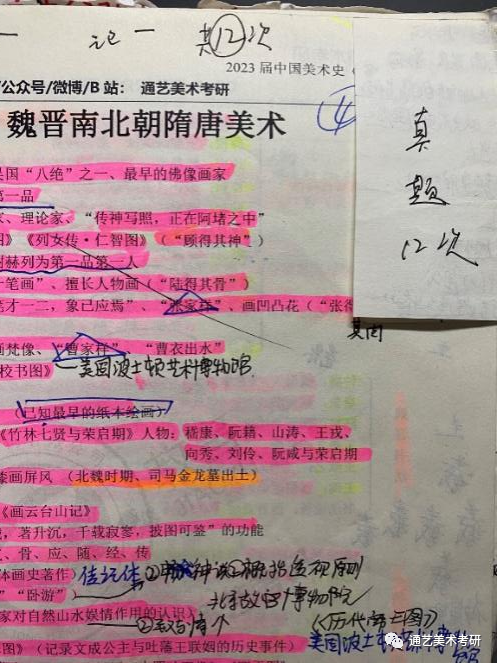 一 记 一 共12次
2023 届中国美术史（
/公众号/微博/B 站： 通艺美术考研
④
真
题
12次
魏晋南北朝隋唐美术
吴国“八绝”之一、最早的佛像画家
第一品
家、理论家、“传神写照，正在阿堵之中”
图》《列女传·仁智图》（“顾得其神”）
谢赫列为第一品第一人
一笔画”、擅长人物画（“陆得其骨”）
笔才一二，象已应焉”、“张家样”、画凹凸花（“张得
其肉
画梵像、“曹家样”、“曹衣出水”
校书图》 美国波士顿艺术博物馆
（已知最早的纸本绘画）
《竹林七贤与荣启期》人物：嵇康、阮籍、山涛、王戎、
向秀、刘伶、阮咸与荣启期
漆画屏风 （北魏时期、司马金龙墓出土）
《画云台山记》
，著升沉，千载寂寥，披图可鉴”的功能
、骨、应、随、经、传
体画史著作）传记体
”“卧游”）
北京故宫博物院
家对自然山水娱情作用的认识）
《历代帝王图》
美国波士顿
图》（记录文成公主与吐蕃王联姻的历史事件）
通艺美术考研